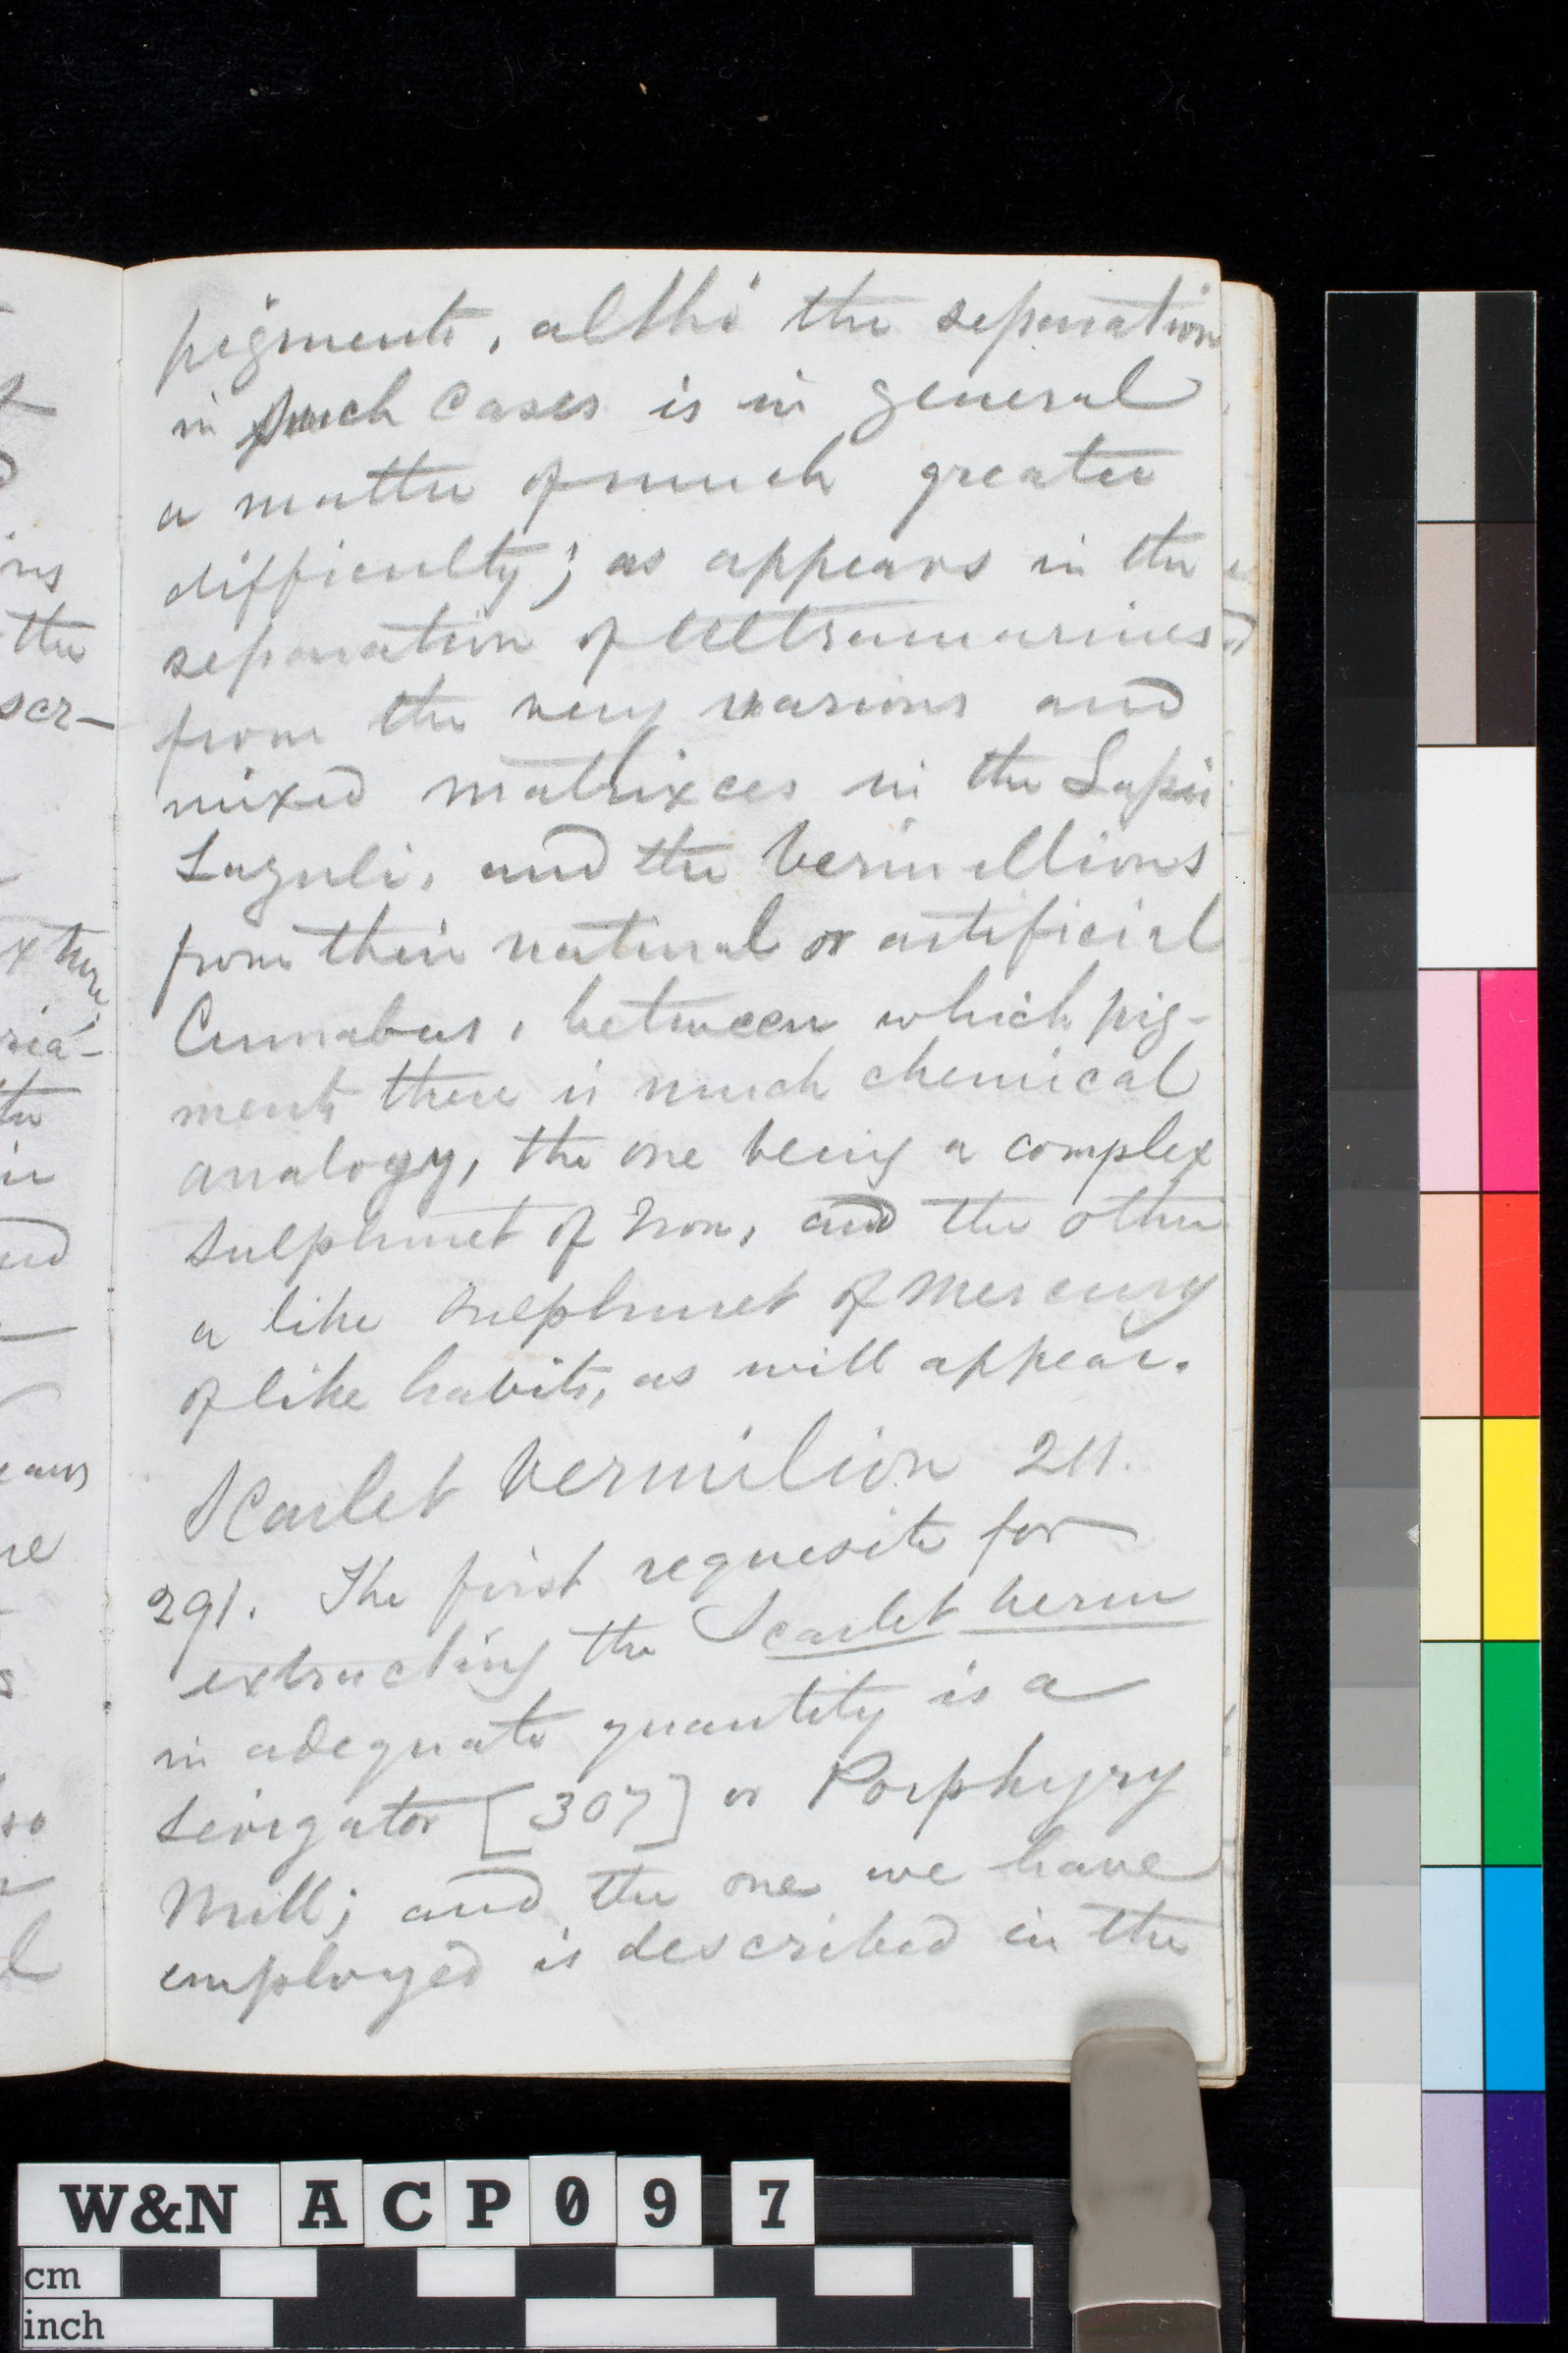 pigments, altho' the separation
in such cases is in general
a matter of much greater
difficulty; as appears in the
separation of Ultramarines
from the very various and
mixed matrixces in the Lapis
Lazuli, and the Vermillions
from their natural or artificial
Cinnabar, between which pig-
ments there is much chemical
analogy, the one being a complex
sulphuret of Iron, and the other
a like sulphuret of Mercury
of like habits, as will appear.
Scarlet Vermilion 211.
291. The first requesite for
extracting the Scarlet Verm
in adequate quantity is a
Levigator [307] or Porphyry
Mill; and the one we have
employed is described in the
W&N ACP09 7
cm
inch